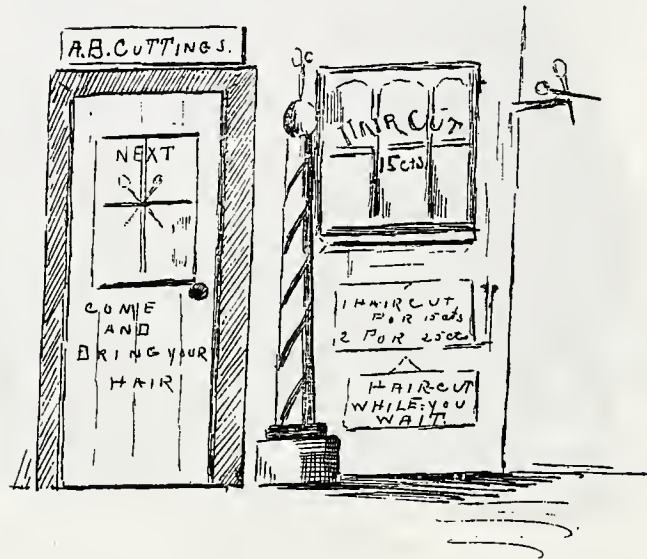 A.B. CUTTINGS.
NEXT
COME
AND
BRING YOUR
HAIR
HAIR CUT
15cts.
1 HAIR CUT
FOR 15cts
2 FOR 25ct
HAIR-CUT
WHILE YOU
WAIT.